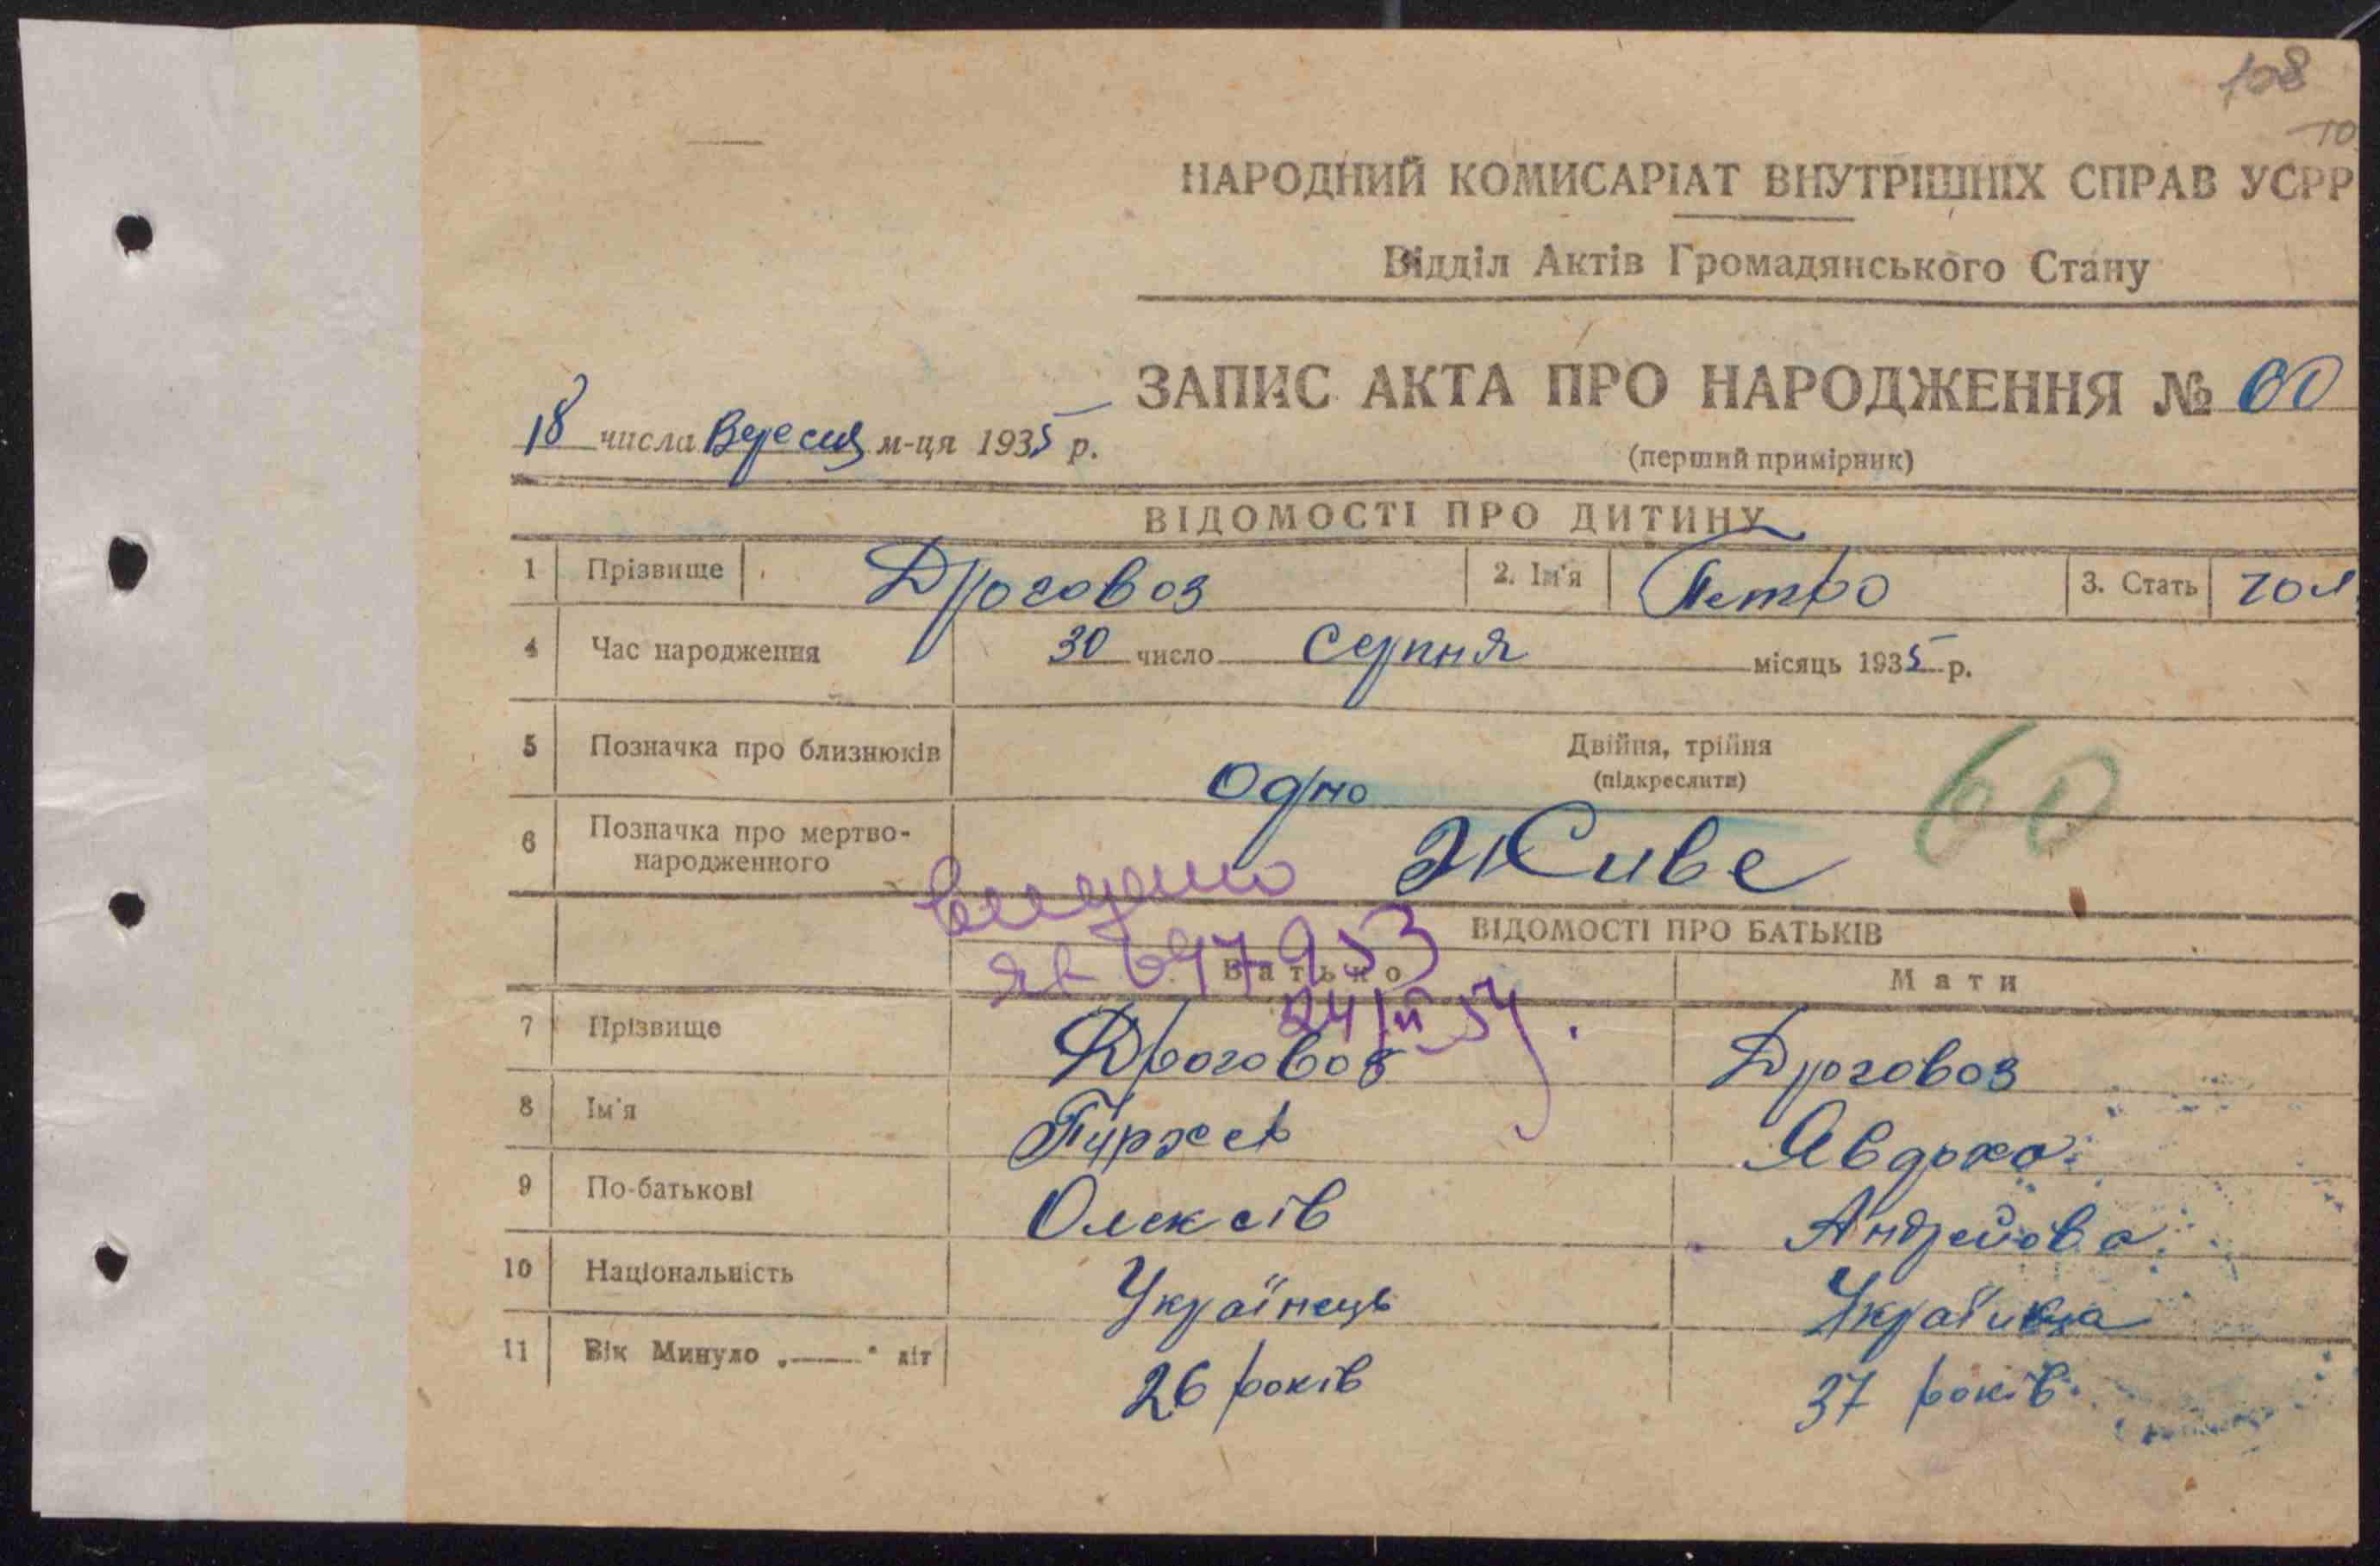 108
10
НАРОДНИЙ КОМИСАРІАТ ВНУТРІШНІХ СПРАВ УСРР
Відділ Актів Громадянського Стану
ЗАПИС АКТА ПРО НАРОДЖЕННЯ № 60
18 числа Вересня м-ця 1935 р.
(перший примірник)
ВІДОМОСТІ ПРО ДИТИНУ
1 Прізвище Дроговоз 2. Ім'я Петро 3. Стать чол
4 Час народження 30 число Серпня місяць 1935 р.
5 Позначка про близнюків Одно Двійня, трійня
(підкреслити)
60
6 Позначка про мертво-
народженного Живе
ВІДОМОСТІ ПРО БАТЬКІВ
697953
Батько Мати
24/II 54
7 Прізвище Дроговоз Дроговоз
8 Ім'я Явдоха
9 По-батькові Олексів Андрейова
10 Національність Українець Українка
11 Вік Минуло „——" літ 26 років 37 років